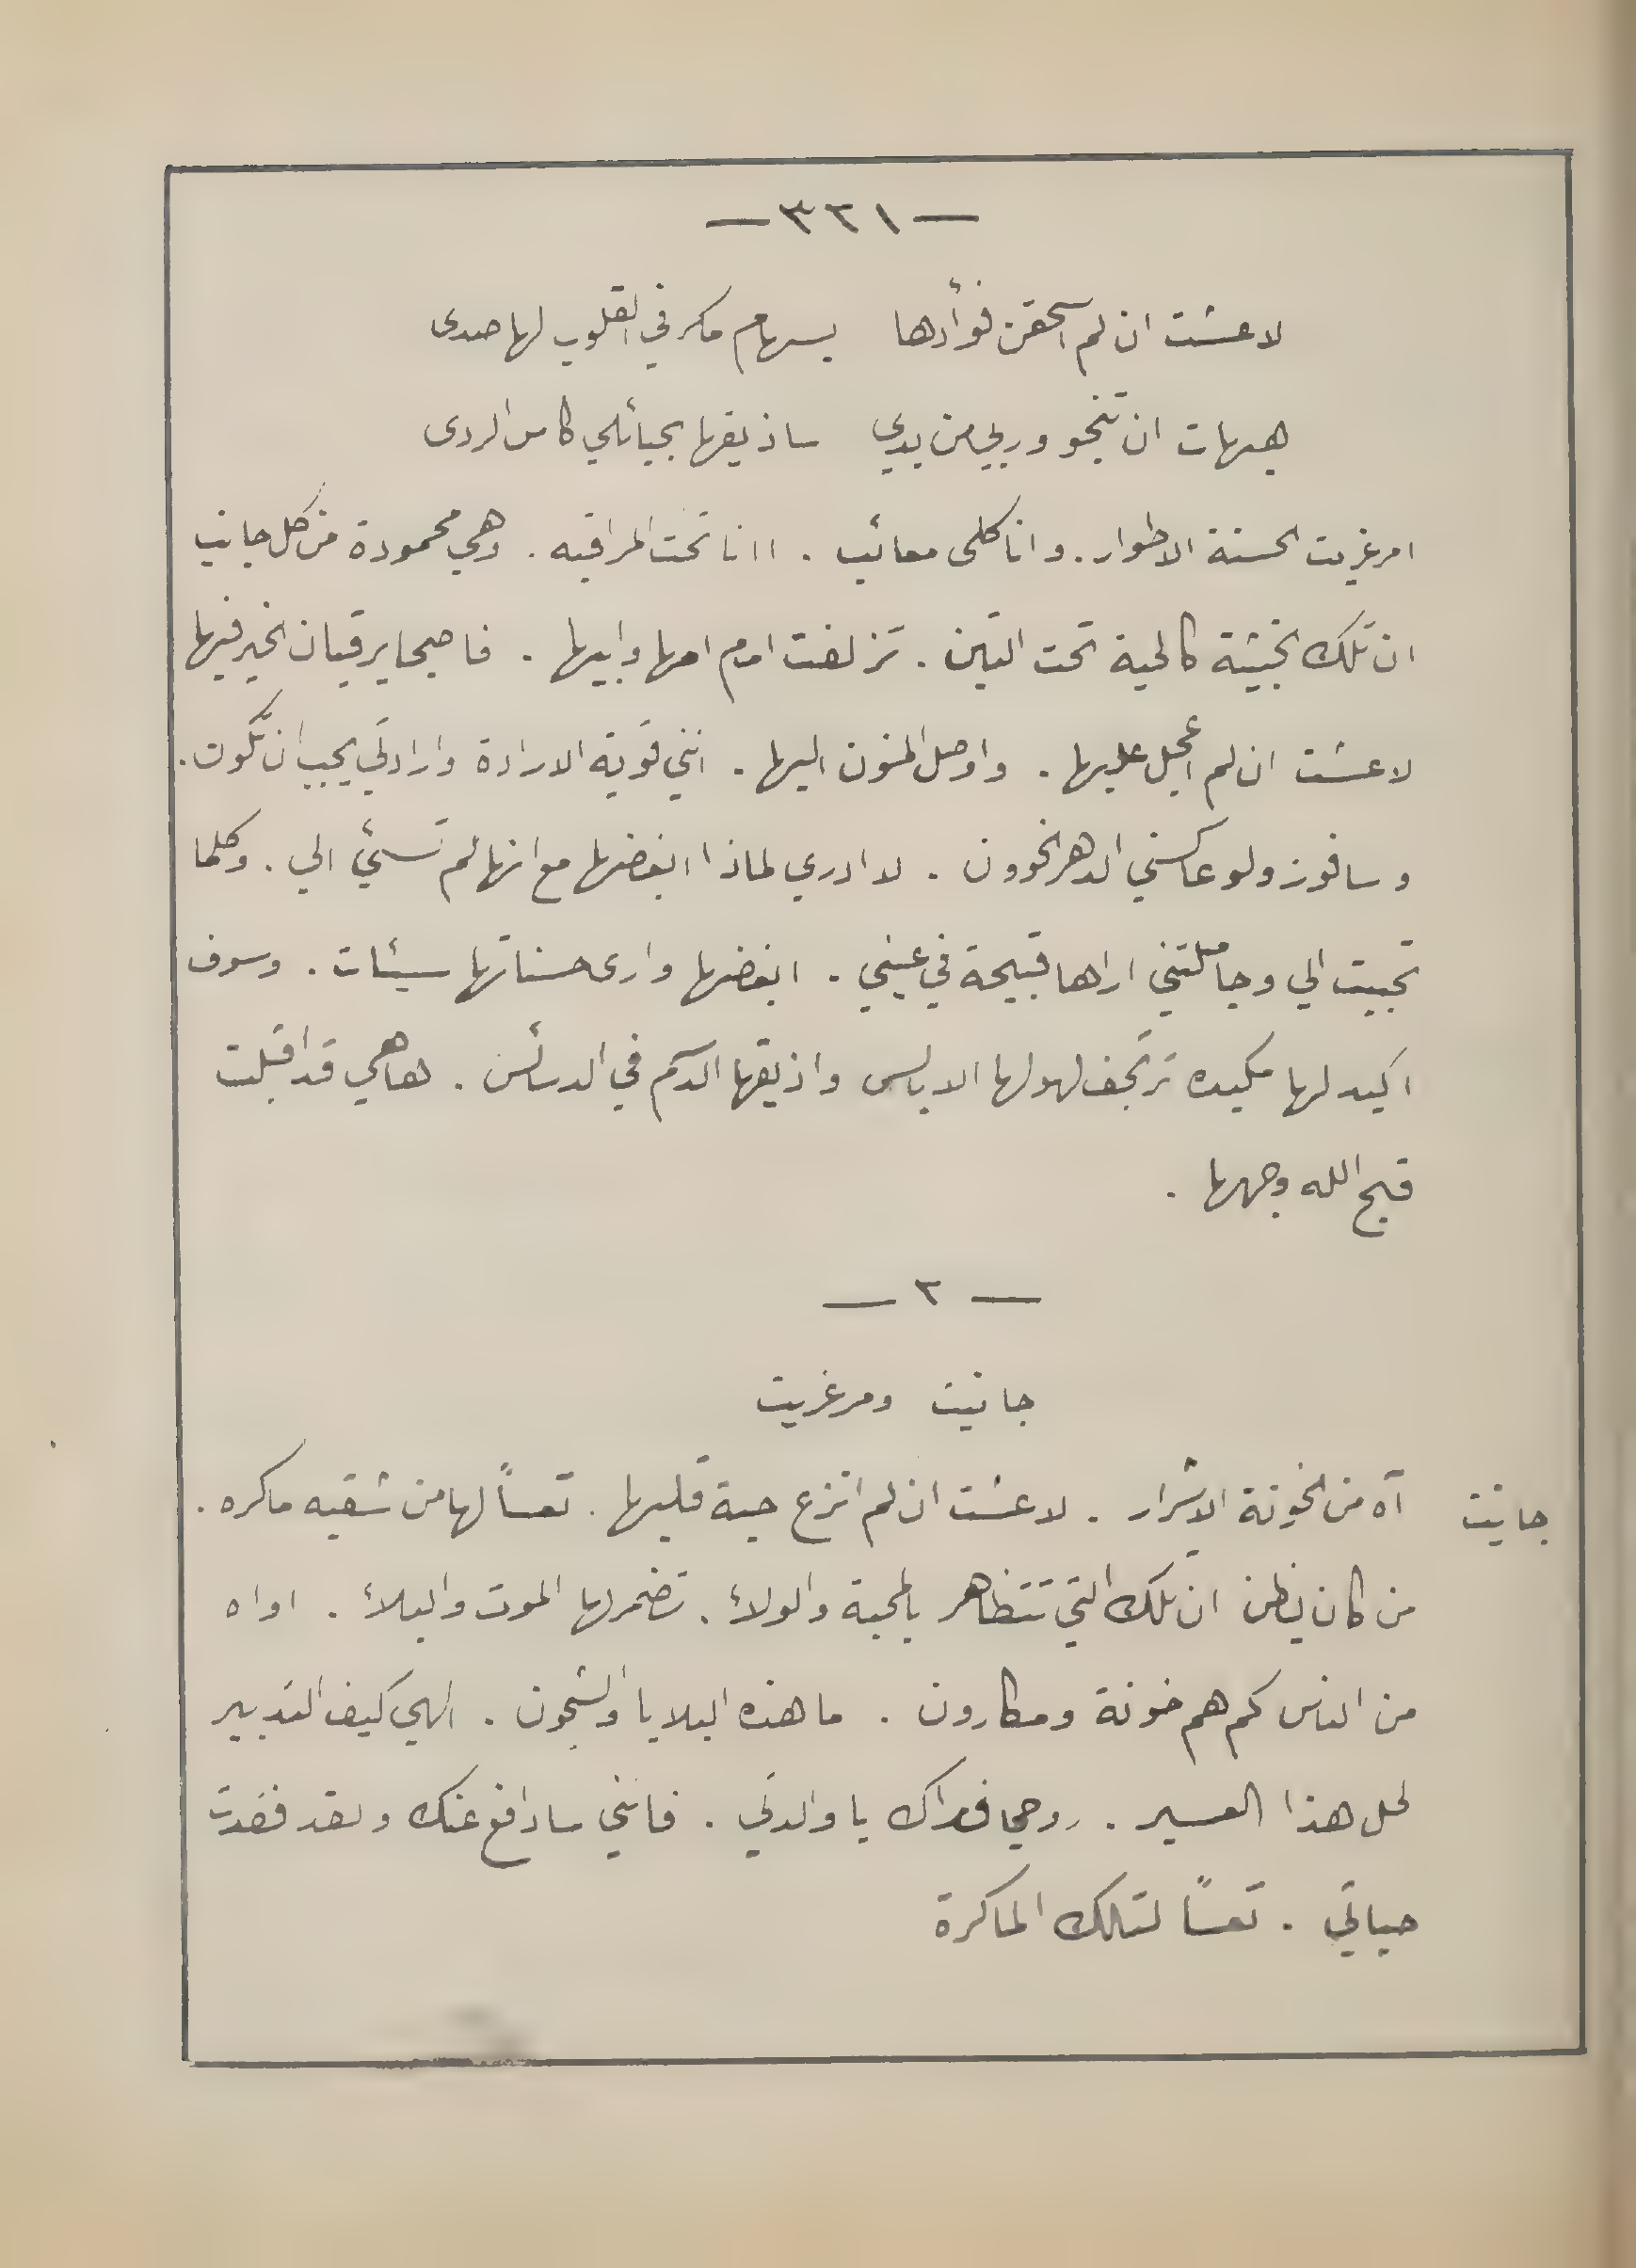 — ٣٢١ —
لا عشت ان لم اسحقن فوأدها    بسهام مكر في القلوب لها صدى
هيهات ان تنجو وربي من يدي    ساذيقها بحبائلي كاس الردى
امرغريت الحسنة الاطوار. وانا كلى معائب . اانا تحت المراقبه . وهي محمودة من كل جانب
ان تلك الخبيثة كالحية تحت التبن . تزلفت امام امها وابيها . فاصبحا يرقبان الخير فيها
لا عشت ان لم اعجل عليها . واوصل المنون اليها . انني قوية الارادة وارادتي يجب ان تكون .
وسافوز ولو عاكسني الدهر الخوون . لا ادري لماذا ابغضها مع انها لم تسئ الي . وكلما
تحببت الي وجاملتني اراها قبيحة في عيني . ابغضها وارى حسناتها سيئات . وسوف
اكيد لها مكيده ترتجف لهولها الابالس واذيقها الدسم في الدسائس . هاهي قد اقبلت
قبح الله وجهها .
— ٢ —
جانيت ومرغريت
جانيت    آه من الخونة الاشرار . لا عشت ان لم انزع حبة قلبها . تعساً لها من شقيه ماكره .
من كان يظن ان تلك التي تتظاهر بالمحبة والولأ . تضمر لها الموت والبلأ . اواه
من الناس كم هم خونة ومكارون . ما هذه البلايا والشجون . الهي كيف التدبير
لحل هذا العسير . روحي فداك يا والدتي . فانني سادافع عنك ولقد فقدت
حياتي . تعساً لتلك الماكرة